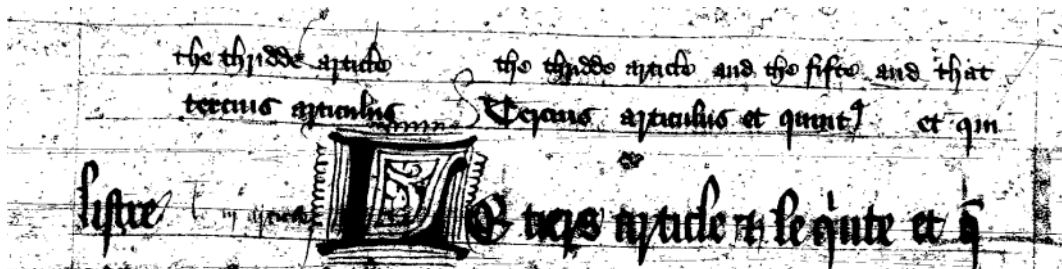 the thridde article the thridde article and the fifte and that
tercius articulus Tercius articulus et quint9 et qui
listre LE tiers article et le qute et q̄